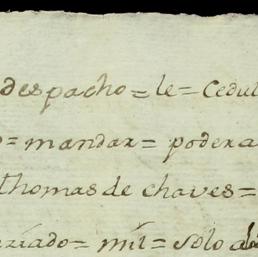 despacho = le = Cedul
= mandar = podera
thomas de chaves =
= mil = solo